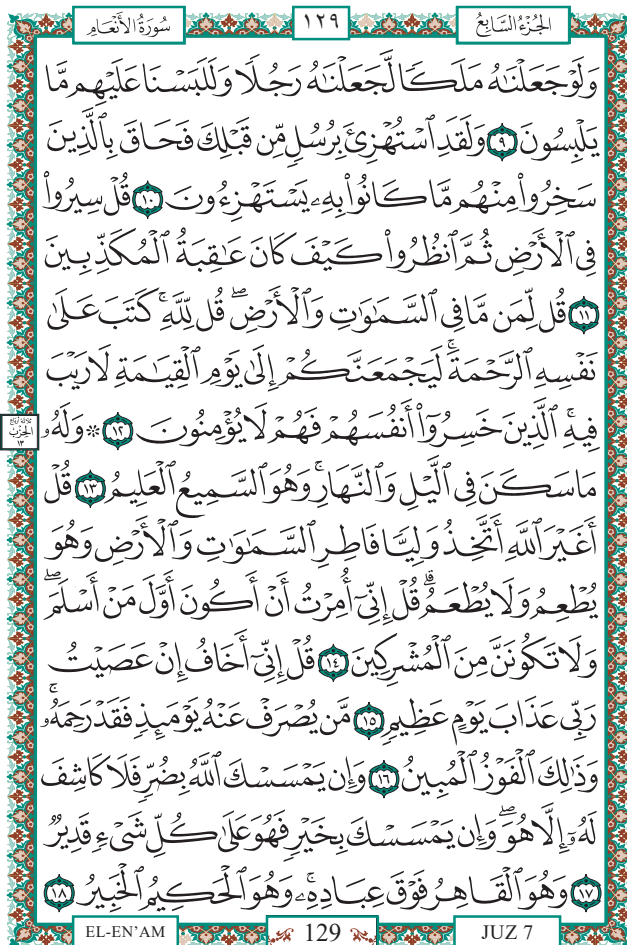 سُورَةُ الأَنْعَامِ ١٢٩ الجُزْءُ السَّابِعُ
وَلَوْ جَعَلْنَٰهُ مَلَكًا لَّجَعَلْنَٰهُ رَجُلًا وَلَلَبَسْنَا عَلَيْهِم مَّا
يَلْبِسُونَ ٩ وَلَقَدِ ٱسْتُهْزِئَ بِرُسُلٍ مِّن قَبْلِكَ فَحَاقَ بِٱلَّذِينَ
سَخِرُوا۟ مِنْهُم مَّا كَانُوا۟ بِهِۦ يَسْتَهْزِءُونَ ١٠ قُلْ سِيرُوا۟
فِى ٱلْأَرْضِ ثُمَّ ٱنظُرُوا۟ كَيْفَ كَانَ عَٰقِبَةُ ٱلْمُكَذِّبِينَ
١١ قُل لِّمَن مَّا فِى ٱلسَّمَٰوَٰتِ وَٱلْأَرْضِ ۖ قُل لِّلَّهِ ۚ كَتَبَ عَلَىٰ
نَفْسِهِ ٱلرَّحْمَةَ ۚ لَيَجْمَعَنَّكُمْ إِلَىٰ يَوْمِ ٱلْقِيَٰمَةِ لَا رَيْبَ
فِيهِ ۚ ٱلَّذِينَ خَسِرُوٓا۟ أَنفُسَهُمْ فَهُمْ لَا يُؤْمِنُونَ ١٢ ۞ وَلَهُۥ
ثلاثة أرباع الحزب ١٣
مَا سَكَنَ فِى ٱلَّيْلِ وَٱلنَّهَارِ ۚ وَهُوَ ٱلسَّمِيعُ ٱلْعَلِيمُ ١٣ قُلْ
أَغَيْرَ ٱللَّهِ أَتَّخِذُ وَلِيًّا فَاطِرِ ٱلسَّمَٰوَٰتِ وَٱلْأَرْضِ وَهُوَ
يُطْعِمُ وَلَا يُطْعَمُ ۗ قُلْ إِنِّىٓ أُمِرْتُ أَنْ أَكُونَ أَوَّلَ مَنْ أَسْلَمَ ۖ
وَلَا تَكُونَنَّ مِنَ ٱلْمُشْرِكِينَ ١٤ قُلْ إِنِّىٓ أَخَافُ إِنْ عَصَيْتُ
رَبِّى عَذَابَ يَوْمٍ عَظِيمٍ ١٥ مَّن يُصْرَفْ عَنْهُ يَوْمَئِذٍ فَقَدْ رَحِمَهُۥ ۚ
وَذَٰلِكَ ٱلْفَوْزُ ٱلْمُبِينُ ١٦ وَإِن يَمْسَسْكَ ٱللَّهُ بِضُرٍّ فَلَا كَاشِفَ
لَهُۥٓ إِلَّا هُوَ ۖ وَإِن يَمْسَسْكَ بِخَيْرٍ فَهُوَ عَلَىٰ كُلِّ شَىْءٍ قَدِيرٌ
١٧ وَهُوَ ٱلْقَاهِرُ فَوْقَ عِبَادِهِۦ ۚ وَهُوَ ٱلْحَكِيمُ ٱلْخَبِيرُ ١٨
EL-EN'AM 129 JUZ 7